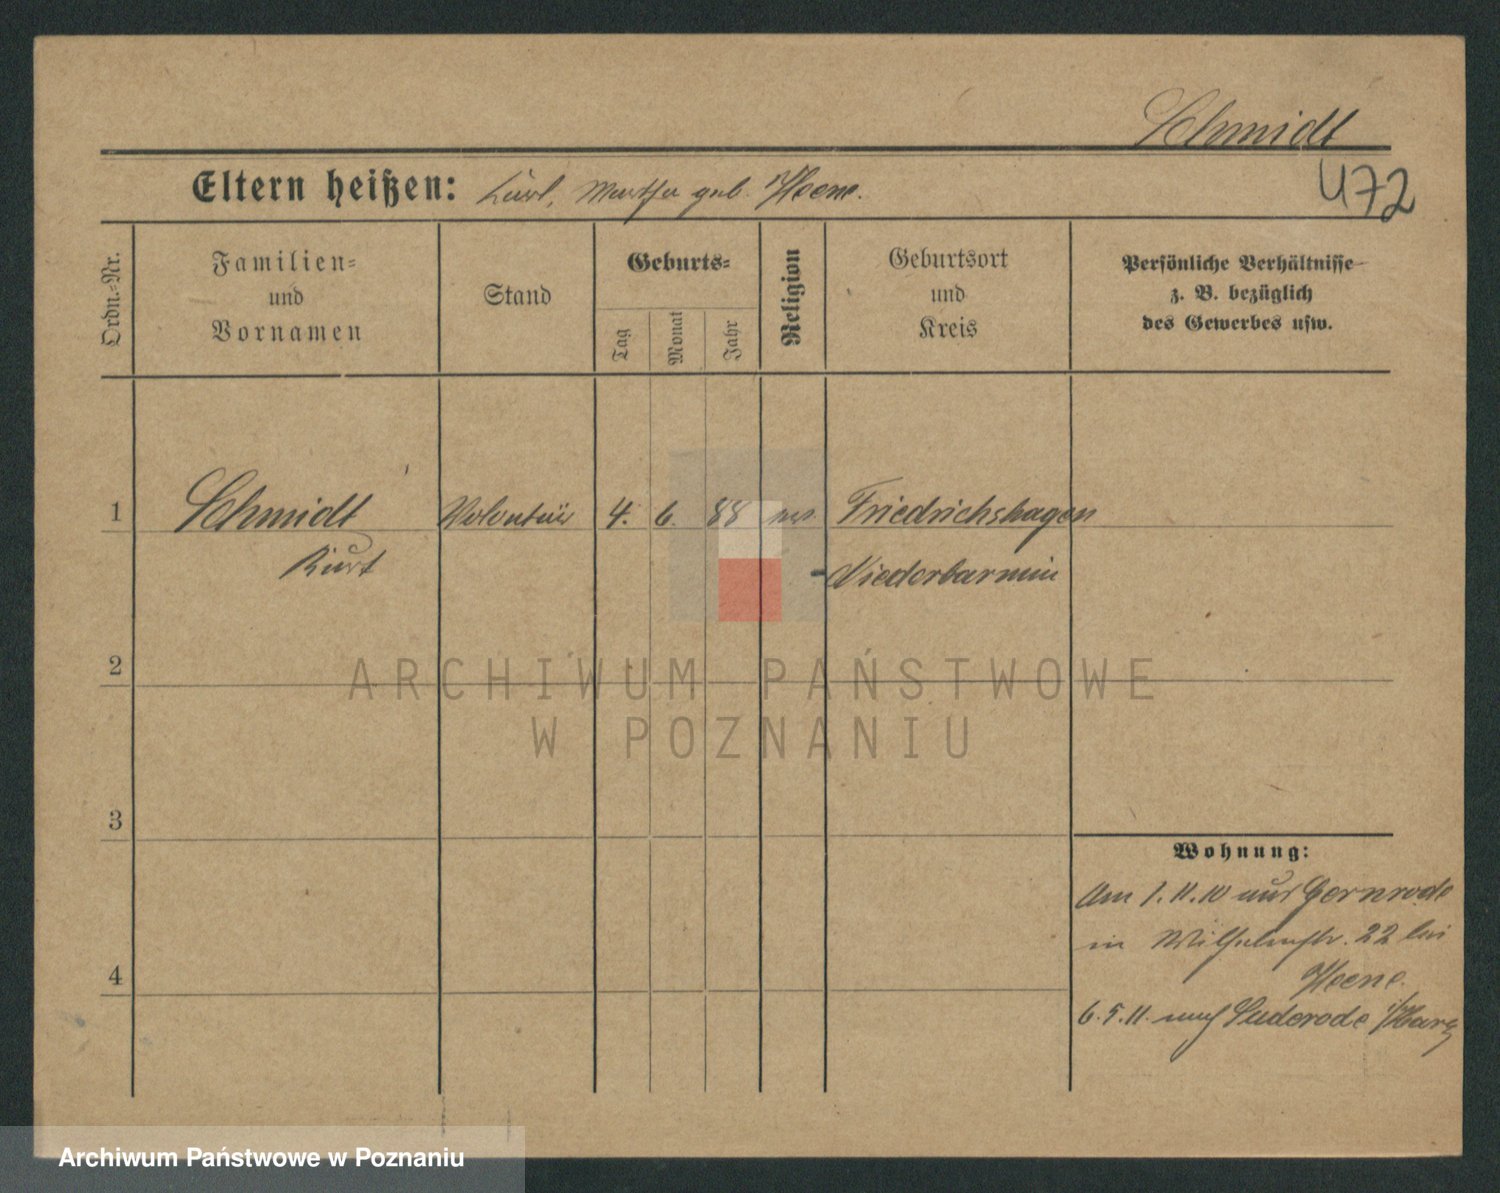 Schmidt
472
Eltern heißen: Karl, Martha geb. Heene.
Ordn.=Nr.
Familien=
und
Vornamen
Stand
Geburts=
Tag
Monat
Jahr
Religion
Geburtsort
und
Kreis
Persönliche Verhältnisse
z. B. bezüglich
des Gewerbes usw.
1
Schmidt
Kurt
Volontär
4. 6. 88
Friedrichshagen
Niederbarnim
2
3
4
Wohnung:
Am 1.11.10 aus Gernrode
in Wilhelmstr. 22 bei
Heene.
6.5.11. nach Suderode i/Harz
ARCHIWUM PAŃSTWOWE
W POZNANIU
Archiwum Państwowe w Poznaniu